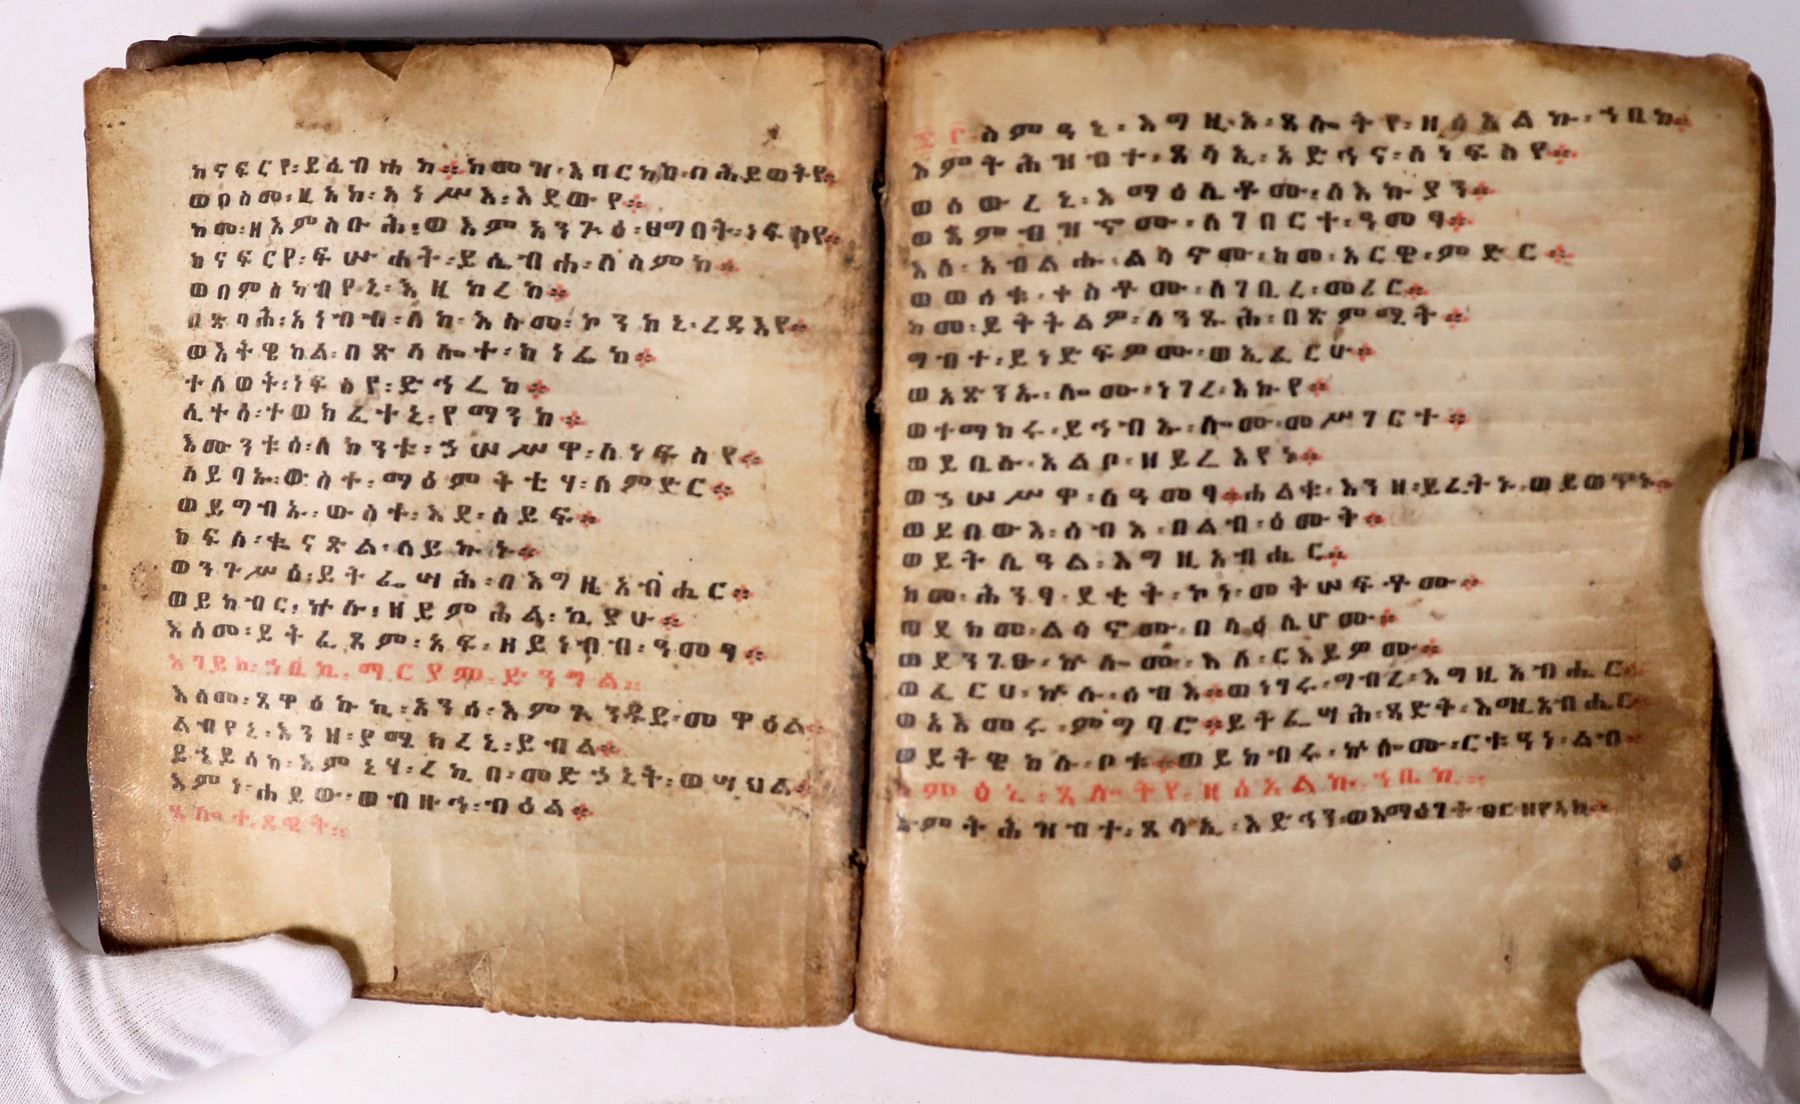 ከናፍርየ፡ይሴብሐከ። ከመዝ፡እባርከከ፡በሕይወትየ።
ወበስመ፡ዚአከ፡አነሥእ፡እደውየ።
ከመ፡ዘእምስቡሕ፡ወእምአንጉዕ፡ፀግበት፡ነፍስየ።
ከናፍርየ፡ፍሡሐት፡ይሴብሐ፡ለስምከ።
ወበምስካብየኒ፡እዜከረከ።
በጽባሕ፡አነብብ፡ለከ፡እስመ፡ኮንከኒ፡ረዳእየ።
ወእትዌከል፡በጽላሎተ፡ክነፊከ።
ተለወት፡ነፍስየ፡ድኅሬከ።
ሊተሰ፡ተወክፈተኒ፡የማንከ።
እሙንቱሰ፡ለከንቱ፡ኀሠሥዋ፡ለነፍስየ።
ለይባኡ፡ውስተ፡ማዕምትቲሃ፡ለምድር።
ወይግብኡ፡ውስተ፡እደ፡ሰይፍ።
ክፍለ፡ቈናጽል፡ለይኩኑ።
ወንጉሥሰ፡ይትፌሣሕ፡በእግዚአብሔር።
ወይከብር፡ኵሉ፡ዘይምሕል፡ኪያሁ።
እስመ፡ይትፈጸም፡አፍ፡ዘይነብብ፡ዓመፃ።
ማርያም፡ድንግል።
እስመ፡ጸዋዕኩኪ፡አንሰ፡እምጕንዱይ፡መዋዕል።
ልብየኒ፡እንዘ፡ያሜክረኒ፡ይብል።
ይኄይሰከ፡እምኔሃ፡ረኪበ፡መድኃኒት፡ወሣህል።
እምነ፡ሐይው፡ወብዙኅ፡ብዕል።
ጸሎተ፡ዳዊት።
ስምዓኒ፡እግዚኦ፡ጸሎትየ፡ዘሰአልኩ፡ኀቤከ።
እምትሕዝብተ፡ጸላኢ፡አድኅና፡ለነፍስየ።
ወሰውረኒ፡እማዕሌቶሙ፡ለእኩያን።
ወእምብዝኆሙ፡ለገበርተ፡ዓመፃ።
እለ፡አብልሑ፡ልሳኖሙ፡ከመ፡አርዌ፡ምድር።
ወወሰቁ፡ቀስቶሙ፡ለገቢረ፡መሪር።
ከመ፡ይቅትልዎ፡ለንጹሕ፡በጽምሚት።
ግብተ፡ይነድፍዎሙ፡ወኢፈርሁ።
ወአጽንኡ፡ሎሙ፡ነገረ፡እኩየ።
ወተማከሩ፡ይኅብኡ፡ሎሙ፡መሥገርተ።
ወይቤሉ፡አልቦ፡ዘይሬእየነ።
ወኀሠሥዋ፡ለዓመፃ። ሐልቁ፡እንዘ፡ይፈትኑ፡ወይወጥኑ።
ወይበውእ፡ሰብእ፡በልብ፡ዕሙቅ።
ወይትሌዓል፡እግዚአብሔር።
ከመ፡ሕንፃ፡ደቂቅ፡ኮነ፡መቅሠፍቶሙ።
ወደከመ፡ልሳኖሙ፡በላዕሌሆሙ።
ወደንገፁ፡ኵሎሙ፡እለ፡ርእይዎሙ።
ወፈርሀ፡ኵሉ፡ሰብእ። ወነገሩ፡ግብረ፡እግዚአብሔር።
ወአእመሩ፡ምግባሮ። ይትፌሣሕ፡ጻድቅ፡በእግዚአብሔር።
ወይትዌከል፡ቦቱ። ወይከብሩ፡ኵሎሙ፡ርቱዓነ፡ልብ።
ስምዕኒ፡ጸሎትየ፡ዘሰአልኩ፡ኀቤኪ።
እምትሕዝብተ፡ጸላኢ፡አድኅንኒ፡